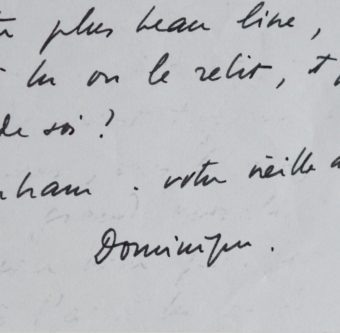 plus beau livre,
lu on le relit, et
de soi ?
. votre vieille
Dominique.